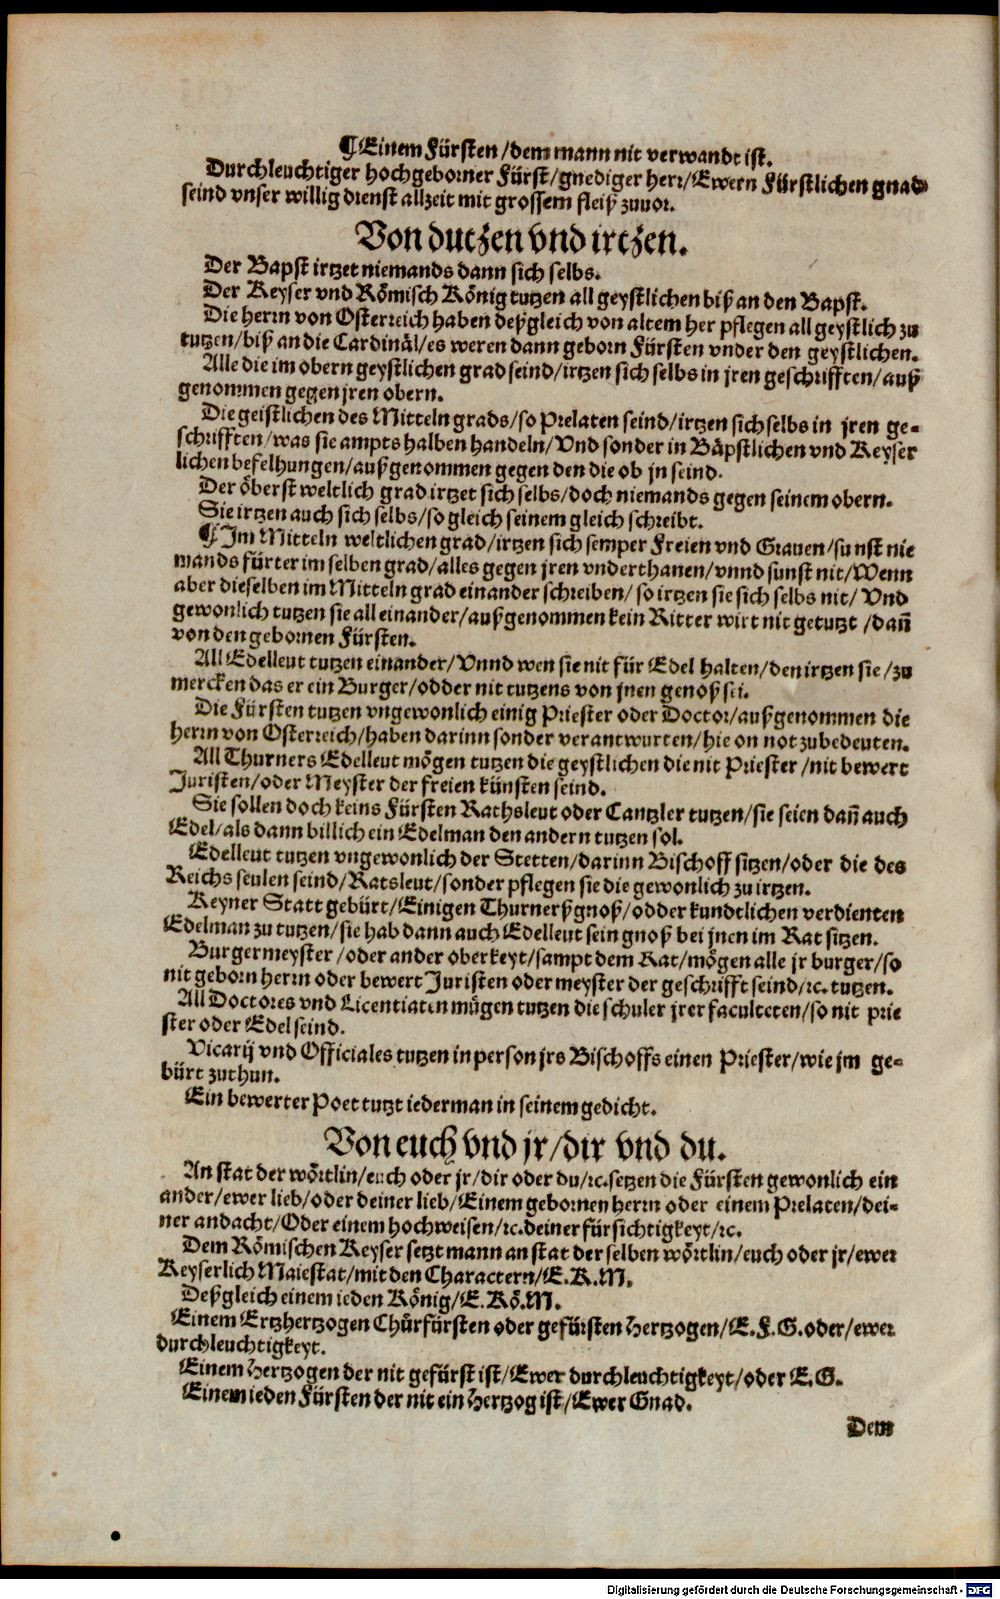 ¶ Einem Fürsten / dem mann nit verwandt ist.
Durchleuchtiger hochgeborner Fürst / gnediger herr / Ewern Fürstlichen gnad
seind vnser willig dienst allzeit mit grossem fleiß zuuor.
Von dutzen vnd irtzen.
Der Bapst irtzet niemands dann sich selbs.
Der Keyser vnd Römisch König tutzen all geystlichen biß an den Bapst.
Die herrn von Osterreich haben deßgleich von altem her pflegen all geystlich zu
tutzen / biß an die Cardinäl / es weren dann geborn Fürsten vnder den geystlichen.
Alle die im obern geystlichen grad seind / irtzen sich selbs in jren geschrifften / auß
genommen gegen jren obern.
Die geistlichen des Mitteln grads / so Prelaten seind / irtzen sich selbs in jren ge-
schrifften / was sie ampts halben handeln / Vnd sonder in Bäpstlichen vnd Keyser
lichen befelhungen / außgenommen gegen den die ob jn seind.
Der öberst weltlich grad irtzet sich selbs / doch niemands gegen seinem obern.
Sie irtzen auch sich selbs / so gleich seinem gleich schreibt.
¶ Im Mitteln weltlichen grad / irtzen sich semper Freien vnd Grauen / sunst nie
mands fürter im selben grad / alles gegen jren vnderthanen / vnnd sunst nit / Wenn
aber dieselben im Mitteln grad einander schreiben / so irtzen sie sich selbs nit / Vnd
gewonlich tutzen sie all einander / außgenommen kein Ritter wirt nit getutzt / dañ
von den gebornen Fürsten.
All Edelleut tutzen einander / Vnnd wen sie nit für Edel halten / den irtzen sie / zu
mercken das er ein Burger / odder nit tutzens von jnen genoß sei.
Die Fürsten tutzen vngewonlich einig Priester oder Doctor / außgenommen die
herrn von Osterreich / haben darinn sonder verantwurten / hie on not zubedeuten.
All Thurners Edelleut mögen tutzen die geystlichen die nit Priester / nit bewert
Juristen / oder Meyster der freien künsten seind.
Sie sollen doch keins Fürsten Rathsleut oder Cantzler tutzen / sie seien dañ auch
Edel / als dann billich ein Edelman den andern tutzen sol.
Edelleut tutzen vngewonlich der Stetten / darinn Bischoff sitzen / oder die des
Reichs seulen seind / Ratsleut / sonder pflegen sie die gewonlich zu irtzen.
Keyner Statt gebürt / Einigen Thurnerßgnoß / odder kundtlichen verdienten
Edelman zu tutzen / sie hab dann auch Edelleut sein gnoß bei jnen im Rat sitzen.
Burgermeyster / oder ander oberkeyt / sampt dem Rat / mögen alle jr burger / so
nit geborn herrn oder bewert Juristen oder meyster der geschrifft seind / ꝛc. tutzen.
All Doctores vnd Licentiaten mögen tutzen die schuler jrer faculteten / so nit prie
ster oder Edel seind.
Vicarij vnd Officiales tutzen in person jrs Bischoffs einen Priester / wie jm ge-
bürt zuthun.
Ein bewerter Poet tutzt iederman in seinem gedicht.
Von euch vnd jr / dir vnd du.
An stat der wörtlin / euch oder jr / dir oder du / ꝛc. setzen die Fürsten gewonlich ein
ander / ewer lieb / oder deiner lieb / Einem gebornen herrn oder einem Prelaten / dei-
ner andacht / Oder einem hochweisen / ꝛc. deiner fürsichtigkeyt / ꝛc.
Dem Römischen Keyser setzt mann an stat der selben wörtlin / euch oder jr / ewer
Keyserlich Maiestat / mit den Charactern / E. K. M.
Deßgleich einem ieden König / E. Kö. M.
Einem Ertzhertzogen Chürfürsten oder gefürsten Hertzogen / E. F. G. oder / ewer
durchleuchtigkeyt.
Einem Hertzogen der nit gefürst ist / Ewer durchleuchtigkeyt / oder E. G.
Einem ieden Fürsten der nit ein Hertzog ist / Ewer Gnad.
Dem
Digitalisierung gefördert durch die Deutsche Forschungsgemeinschaft - DFG